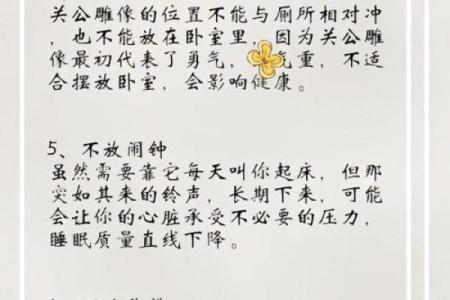 关公雕像的位置不能与厕所相对冲
，也不能放在卧室里，因为关公雕
像最初代表了勇气，气重，不适
合摆放卧室，会影响健康。
5、不放闹钟
虽然需要靠它每天叫你起床，但那
突如其来的铃声，长期下来，可能
会让你的心脏承受不必要的压力，
睡眠质量直线下降。